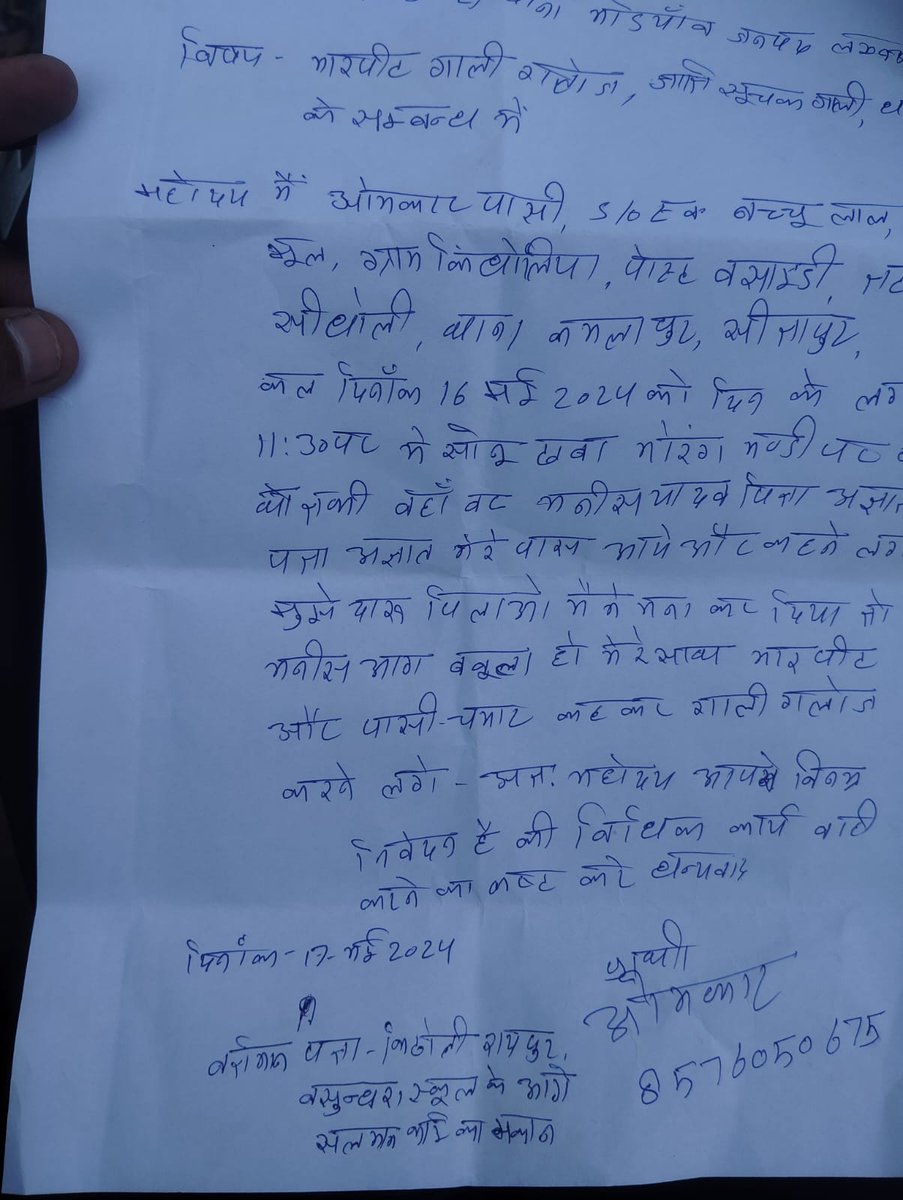 थाना मडियाँव जनपद लखनऊ
विषय - मारपीट गाली गलौज, जाति सूचक गाली,
के सम्बन्ध में
महोदय मैं ओमकार पासी, S/O स्व बच्चू लाल,
मूल, ग्राम किंधोलिया, पोस्ट वसाइडी,
सीधोली, थाना कमलापुर, सीतापुर,
कल दिनाँक 16 मई 2024 को दिन के लग
11:30 पर मै सोनू ढावा मोरंग मण्डी पर
वहाँ पर मनीस यादव पिता अज्ञात
पता अज्ञात मेरे पास आये और कहने लगे
मुझे दारू पिलाओ मैने मना कर दिया तो
मनीस आग बबूला हो मेरे साथ मारपीट
और पासी-चमार कहकर गाली गलोज
करने लगे - अतः महोदय आपसे विनम्र
निवेदन है की विधिक कार्य वाही
करने का कष्ट करे धन्यवाद
दिनाँक - 17 - मई 2024
प्रार्थी
ओमकार
8576050675
वर्तमान पता - रायपुर,
वसुन्धरा स्कूल के आगे
का मकान